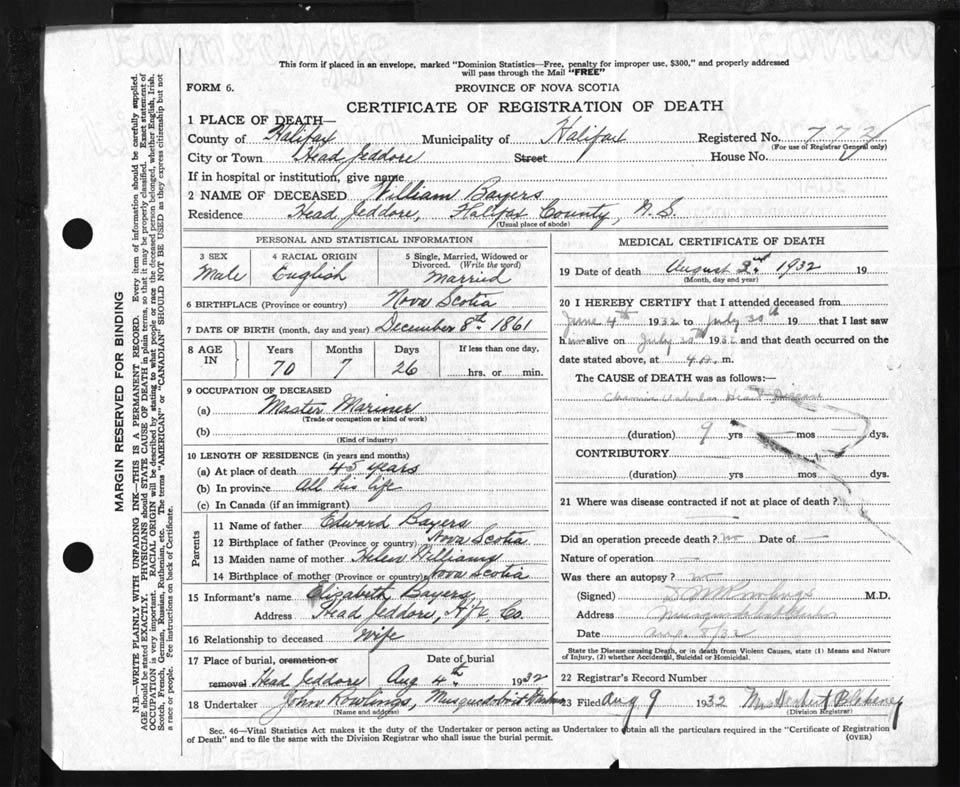 This form if placed in an envelope, marked "Dominion Statistics—Free, penalty for improper use, $300," and properly addressed
will pass through the Mail "FREE"
FORM 6.
PROVINCE OF NOVA SCOTIA
CERTIFICATE OF REGISTRATION OF DEATH
1 PLACE OF DEATH—
County of Halifax Municipality of Halifax Registered No.
(For use of Registrar General only)
City or Town Head Jeddore Street House No.
If in hospital or institution, give name
2 NAME OF DECEASED William Bayers
Residence Head Jeddore, Halifax County, N.S.
(Usual place of abode)
PERSONAL AND STATISTICAL INFORMATION
3 SEX Male
4 RACIAL ORIGIN English
5 Single, Married, Widowed or
Divorced. (Write the word)
Married
6 BIRTHPLACE (Province or country) Nova Scotia
7 DATE OF BIRTH (month, day and year) December 8th 1861
8 AGE IN
Years Months Days If less than one day,
70 7 26 hrs. or min.
9 OCCUPATION OF DECEASED
(a) Master Mariner
(Trade or occupation or kind of work)
(b)
(Kind of industry)
10 LENGTH OF RESIDENCE (in years and months)
(a) At place of death 45 years
(b) In province All his life
(c) In Canada (if an immigrant)
Parents
11 Name of father Edward Bayers
12 Birthplace of father (Province or country) Nova Scotia
13 Maiden name of mother Helen Williams
14 Birthplace of mother (Province or country) Nova Scotia
15 Informant's name Elizabeth Bayers
Address Head Jeddore, Hfx, Co.
16 Relationship to deceased Wife
17 Place of burial, cremation or
removal Head Jeddore
Date of burial
Aug 4th 1932
18 Undertaker John Rowlings, Musquodoboit Harbor
(Name and address)
MEDICAL CERTIFICATE OF DEATH
19 Date of death August 1932 19
(Month, day and year)
20 I HEREBY CERTIFY that I attended deceased from
June 4th 1932 to July 30th 19 that I last saw
him alive on July 30th 1932 and that death occurred on the
date stated above, at 4 m.
The CAUSE of DEATH was as follows:—
Chronic Valvular Heart Disease
(duration) 9 yrs — mos dys.
CONTRIBUTORY
(duration) yrs mos dys.
21 Where was disease contracted if not at place of death?
Did an operation precede death? no Date of —
Nature of operation —
Was there an autopsy? no
(Signed) Rowlings M.D.
Address Musquodoboit Harbor
Date Aug. 8/32
State the Disease causing Death, or in death from Violent Causes, state (1) Means and
Nature of Injury, (2) whether Accidental, Suicidal or Homicidal.
22 Registrar's Record Number
23 Filed Aug 9 1932 Mrs
(Division Registrar)
Sec. 46—Vital Statistics Act makes it the duty of the Undertaker or person acting as Undertaker to obtain all the particulars required in the "Certificate of Registration
of Death" and to file the same with the Division Registrar who shall issue the burial permit.
(OVER)
MARGIN RESERVED FOR BINDING
N.B.—WRITE PLAINLY WITH UNFADING INK—THIS IS A PERMANENT RECORD. Every item of information should be carefully supplied.
AGE should be stated EXACTLY. PHYSICIANS should STATE CAUSE OF DEATH in plain terms, so that it may be properly classified. Exact statement of
OCCUPATION is very important. RACIAL ORIGIN will be described by stating to what people or race the deceased person belonged, whether English, Irish,
Scotch, French, German, Russian, Ruthenian, etc. The terms "AMERICAN" or "CANADIAN" SHOULD NOT BE USED as they express citizenship but not
a race or people. See instructions on back of Certificate.